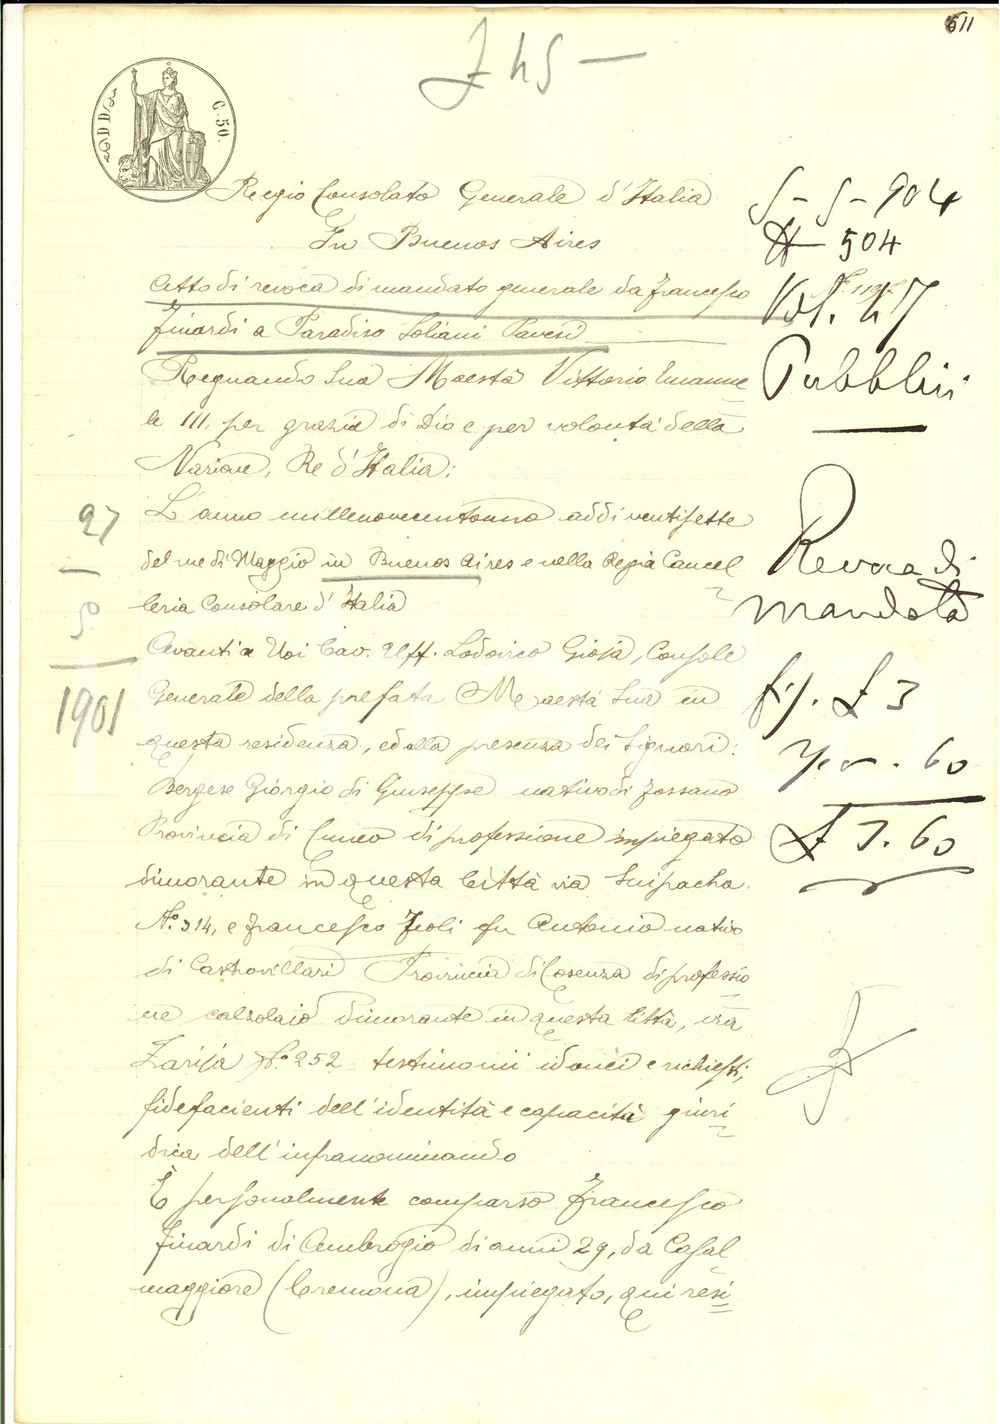 611
£ 45 —
C. 50.
Regio Consolato Generale d'Italia
In Buenos Aires
Atto di revoca di mandato generale da Francesco
Finardi a Paradiso Soliani Pavesi
Regnando Sua Maestà Vittorio Emanue
le III, per grazia di Dio e per volontà della
Nazione, Re d'Italia:
L'anno millenovecentouno addi ventisette
del me di Maggio in Buenos Aires e nella Regia Cancel
leria Consolare d'Italia
Avanti a Noi Cav. Uff. Lodovico Gioja, Console
Generale della prefata Maestà Sua in
questa residenza, ed alla presenza dei Signori:
Bergese Giorgio di Giuseppe nativo di Fossano
Provincia di Cuneo di professione impiegato
dimorante in questa Città via Suipacha
N.° 314, e Francesco Feoli fu Antonio nativo
di Castrovillari Provincia di Cosenza di professio
ne calzolaio dimorante in questa Città, via
N.° 252 testimonii idonei e richiesti,
fidefacienti dell'identità e capacità giuri
dica dell'infranominando
È personalmente comparso Francesco
Finardi di Ambrogio di anni 29, da Casal
maggiore (Cremona), impiegato, qui resi
27
5
1901
5-5-904
504
Vol. 47
Pubblici
Revoca di
mandato
£ 3
60
£ 3.60